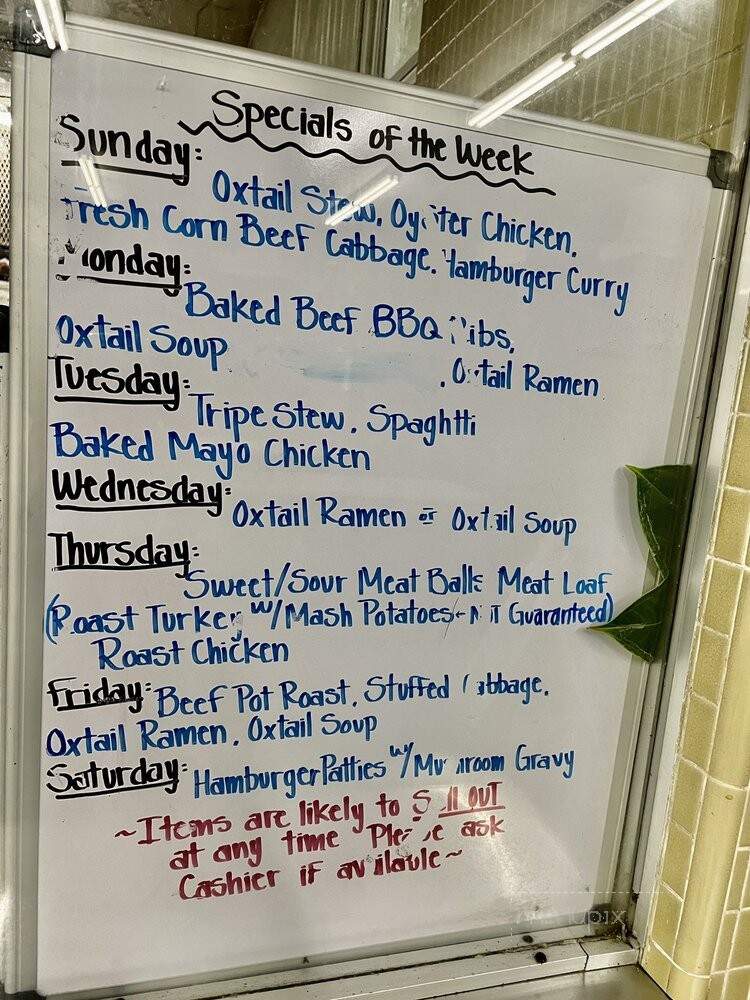 Specials of the Week
Sunday:
Oxtail Stew, Oyster Chicken,
Fresh Corn Beef Cabbage. Hamburger Curry
Monday:
Baked Beef BBQ Ribs,
Oxtail Soup
, Oxtail Ramen
Tuesday:
Tripe Stew, Spaghtti
Baked Mayo Chicken
Wednesday:
Oxtail Ramen or Oxtail Soup
Thursday:
Sweet/Sour Meat Balls Meat Loaf
(Roast Turkey w/Mash Potatoes ← Not Guaranteed)
Roast Chicken
Friday: Beef Pot Roast, Stuffed Cabbage,
Oxtail Ramen, Oxtail Soup
Saturday: Hamburger Patties w/Mushroom Gravy
~Items are likely to Sell OUT
at any time Please ask
Cashier if available~